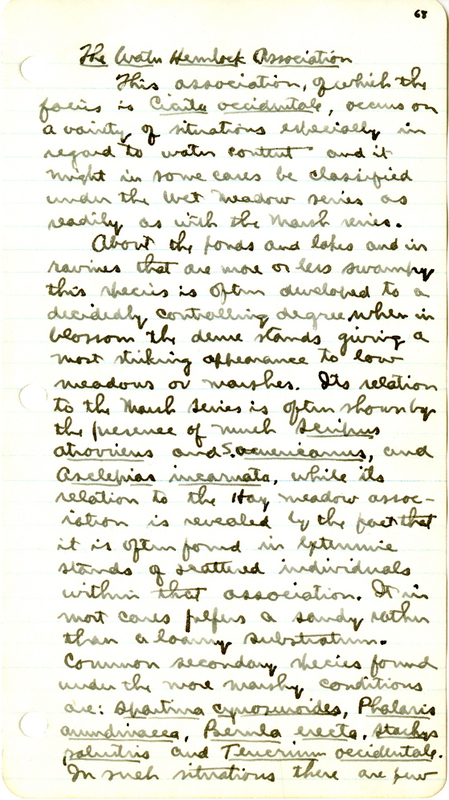 68
The Water Hemlock Association
This association, of which the
facies is Cicuta occidentale, occurs on
a vairity of situations especially in
regard to water content and it
might in some cases be classified
under the Wet Meadow series as
readily as with the Marsh series.
About the ponds and lakes and in
ravines that are more or less swampy
this species is often developed to a
decidedly controlling degree, when in
blossom the dense stands giving a
most striking appearance to low
meadows or marshes. Its relation
to the Marsh Series is often shown by
the presence of much Scirpus
atrovirens and S. americanus, and
Asclepias incarnata, while its
relation to the Hay meadow assoc-
iation is revealed by the fact that
it is often found in extensive
stands of scattered individuals
within that association. It in
most cases prefers a sandy rather
than a loamy substratum.
Common secondary species found
under the more marshy conditions
are: Spartina cynosuroides, Phalaris
arundinacea, Berula erecta, Stachys
palustris and Teucrium occidentale.
In such situations there are few